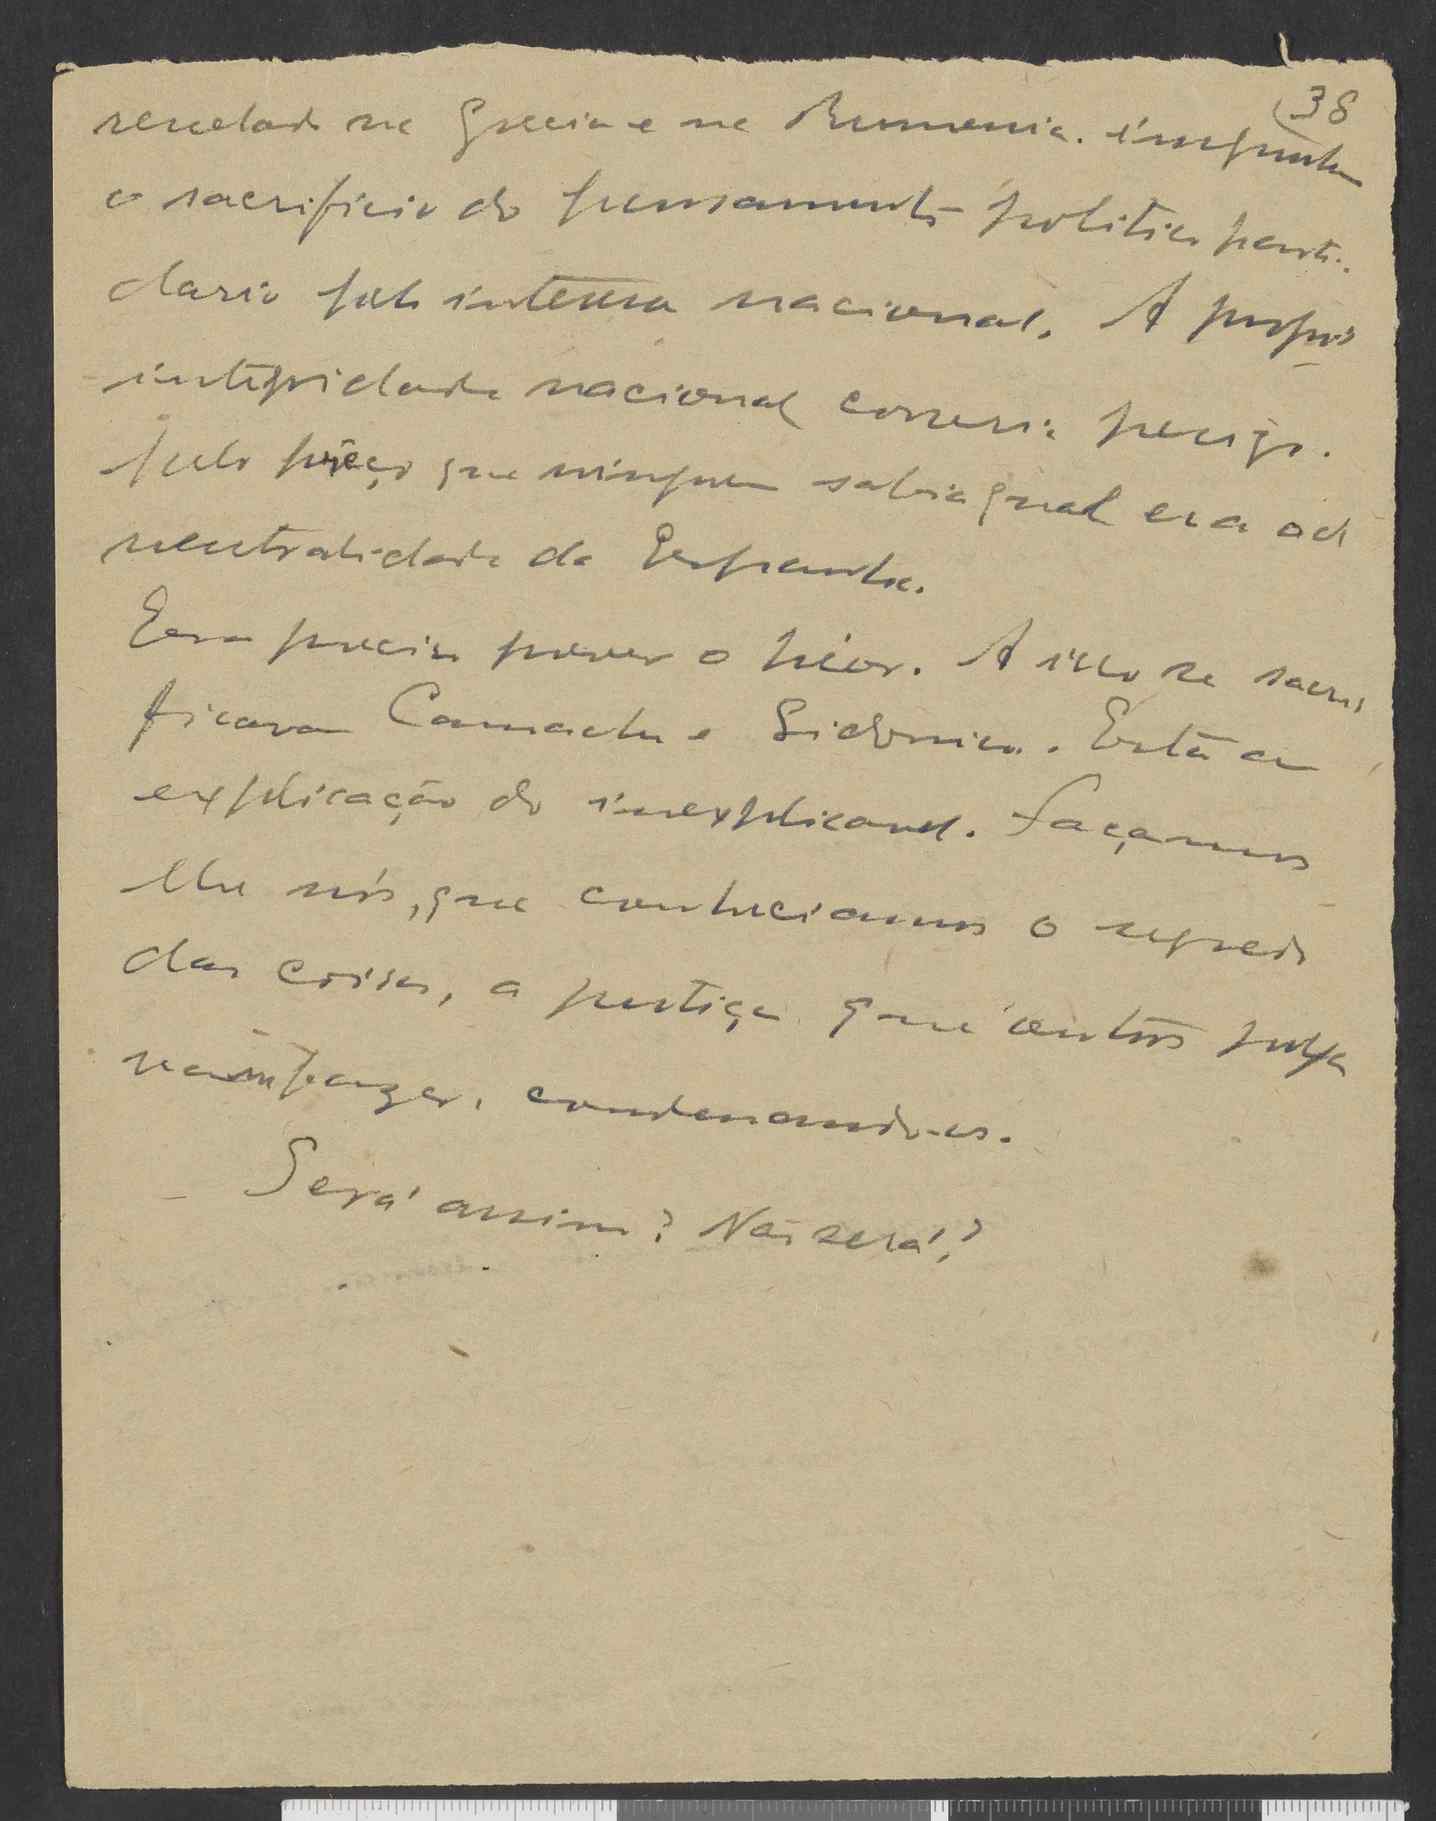 38
na Grecia e na Rumania.
o sacrificio do pensamento politico parti-
dario pelo interesse nacional. A propria
integridade nacional correria perigo.
pelo preço que ninguem sabia qual era a da
neutralidade da Espanha.
Era preciso prever o peor. A isso se sacri
ficavam Camacho e Sidonio. Está a
explicação do inexplicavel. Façamos
lhe nós, que conheciamos o segredo
das coisas, a justiça que outros julga
vam fazer, condenando-os.
Será assim? Não será?